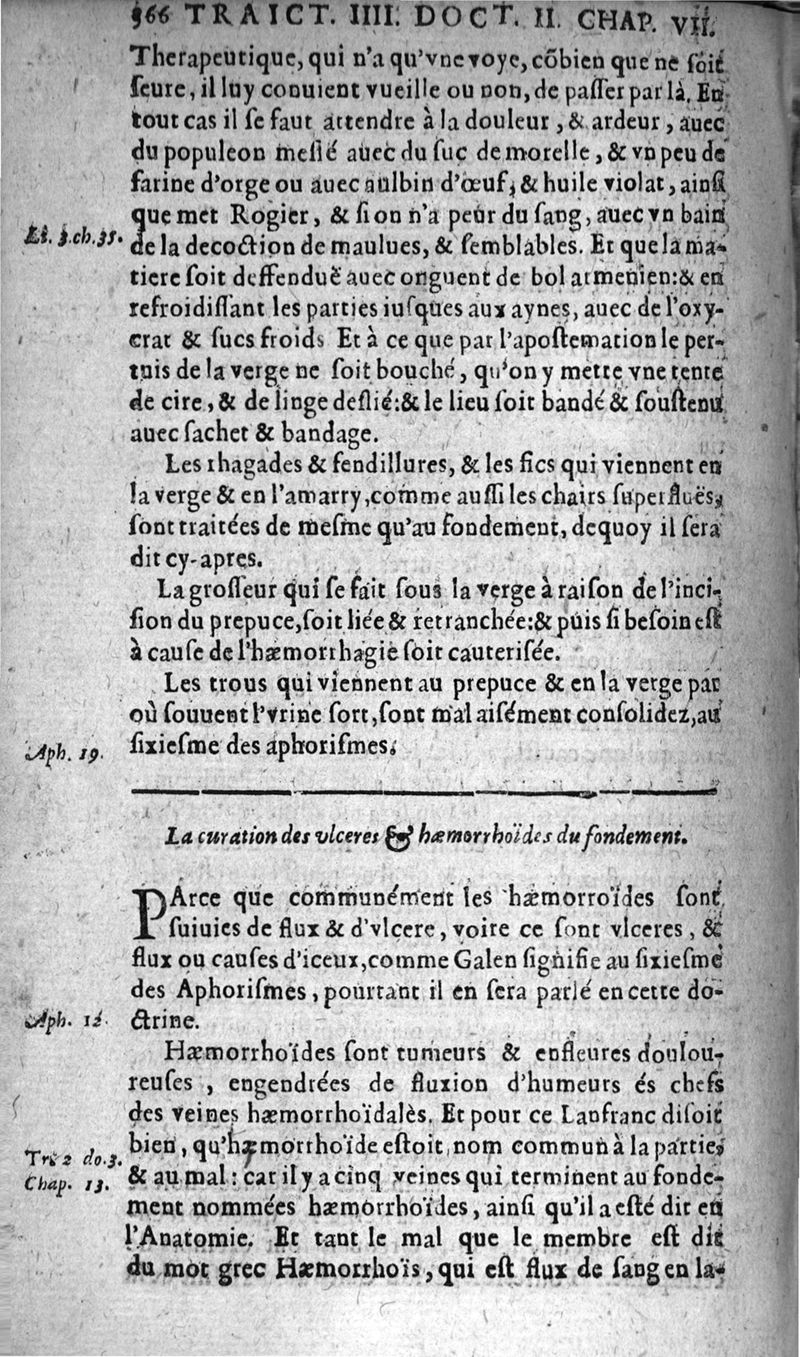 966 TRAICT. IIII. DOCT. II. CHAP. VII.
Therapeutique, qui n'a qu'vne voye, cõbien que ne ſoit
ſeure, il luy conuient vueille ou non, de paſſer par là. En
tout cas il ſe faut attendre à la douleur, & ardeur, auec
du populeon meſlé auec du ſuc de morelle, & vn peu de
farine d'orge ou auec aulbin d'œuf, & huile violat, ainſi
que met Rogier, & ſi on n'a peur du ſang, auec vn bain
Li. 3. ch. 35.
de la decoction de maulues, & ſemblables. Et que la ma-
tiere ſoit deffenduë auec onguent de bol armenien: & en
refroidiſſant les parties iuſques aux aynes, auec de l'oxy-
crat & ſucs froids Et à ce que par l'apoſtemation le per-
tuis de la verge ne ſoit bouché, qu'on y mette vne tente
de cire, & de linge deſlié: & le lieu ſoit bandé & ſouſtenu
auec ſachet & bandage.
Les rhagades & fendillures, & les fics qui viennent en
la verge & en l'amarry, comme auſſi les chairs ſuperfluës,
ſont traitées de meſme qu'au fondement, dequoy il ſera
dit cy-apres.
La groſſeur qui ſe fait ſous la verge à raiſon de l'inci-
ſion du prepuce, ſoit liée & retranchée: & puis ſi beſoin eſt
à cauſe de l'hæmorrhagie ſoit cauteriſée.
Les trous qui viennent au prepuce & en la verge par
où ſouuent l'vrine ſort, ſont mal aiſément conſolidez, au
ſixieſme des aphoriſmes.
Aph. 19.
La curation des vlceres & hæmorrhoïdes du fondement.
PArce que communément les hæmorroïdes ſont
ſuiuies de flux & d'vlcere, voire ce ſont vlceres, &
flux ou cauſes d'iceux, comme Galen ſignifie au ſixieſme
des Aphoriſmes, pourtant il en ſera parlé en cette do-
Aph. 12.
ctrine.
Hæmorrhoïdes ſont tumeurs & enfleures doulou-
reuſes, engendrées de fluxion d'humeurs és chefs
des veines hæmorrhoïdalès. Et pour ce Lanfranc diſoit
bien, qu'hæmorrhoïde eſtoit nom commun à la partie,
Tr. 2 do. 3.
Chap. 13.
& au mal: car il y a cinq veines qui terminent au fonde-
ment nommées hæmorrhoïdes, ainſi qu'il a eſté dit en
l'Anatomie. Et tant le mal que le membre eſt dit
du mot grec Hæmorrhoïs, qui eſt flux de ſang en la-